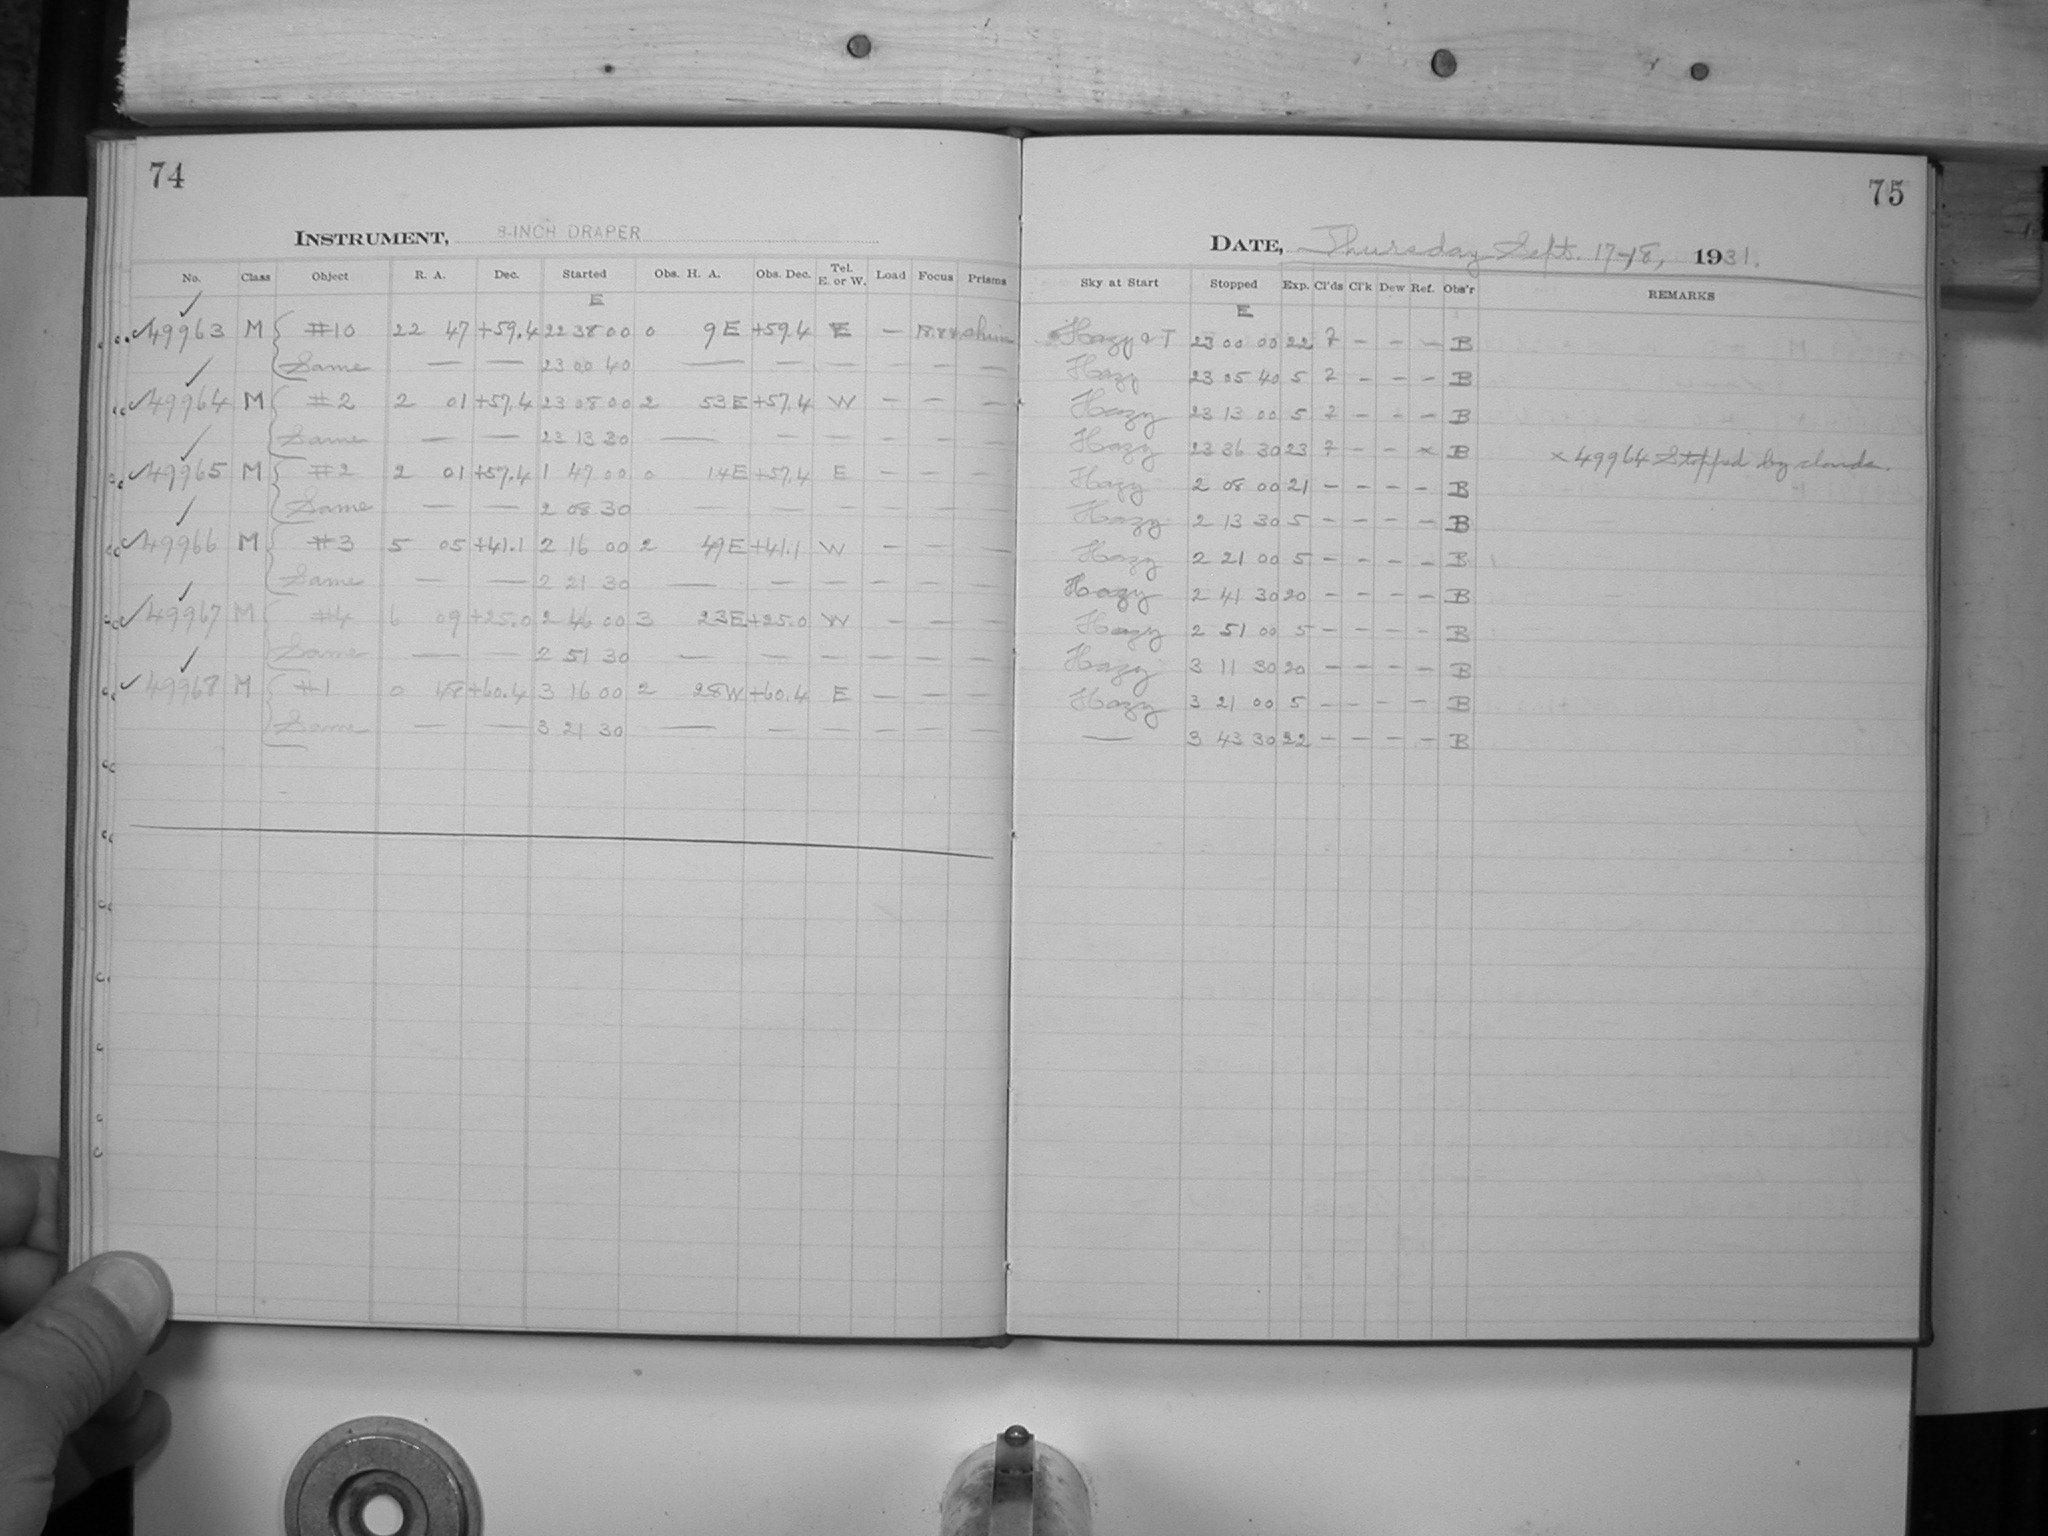 74
INSTRUMENT, 8-INCH DRAPER
No. Class Object R. A. Dec. Started Obs. H. A. Obs. Dec. Tel. E. or W. Load Focus Prisms
E
✓49963 M #10 22 47 +59.4 22 38 00 0 9E +59.4 E —
Same — — 23 00 40 — — — — — —
✓49964 M #2 2 01 +57.4 23 08 00 2 53E +57.4 W — — —
Same — — 23 13 30 — — — — — —
✓49965 M #2 2 01 +57.4 1 47 00 0 14E +57.4 E
Same — — 2 08 30 — — — — — —
✓49966 M #3 5 05 +41.1 2 16 00 2 49E +41.1 W — — —
Same — — 2 21 30 — — — — — —
✓49967 M #4 6 09 +25.0 2 46 00 3 23E +25.0 W — — —
Same — — 2 51 30 — — — — — —
✓49968 M #1 0 48 +60.4 3 16 00 2 28W +60.4 E — — —
Same — — 3 21 30 — — — — — —
75
DATE, Thursday Sept. 17-18, 1931.
Sky at Start Stopped Exp. Cl'ds Cl'k Dew Ref. Obs'r REMARKS
E
Hazy & T 23 00 00 22 7 - - - B
Hazy 23 05 40 5 7 - - - B
Hazy 23 13 00 5 7 - - - B
Hazy 23 36 30 23 7 - - x B x 49964 Stopped by clouds.
Hazy 2 08 00 21 - - - - B
Hazy 2 13 30 5 - - - - B
Hazy 2 21 00 5 - - - - B
Hazy 2 41 30 20 - - - - B
Hazy 2 51 00 5 - - - - B
Hazy 3 11 30 20 - - - - B
Hazy 3 21 00 5 - - - - B
— 3 43 30 22 - - - - B